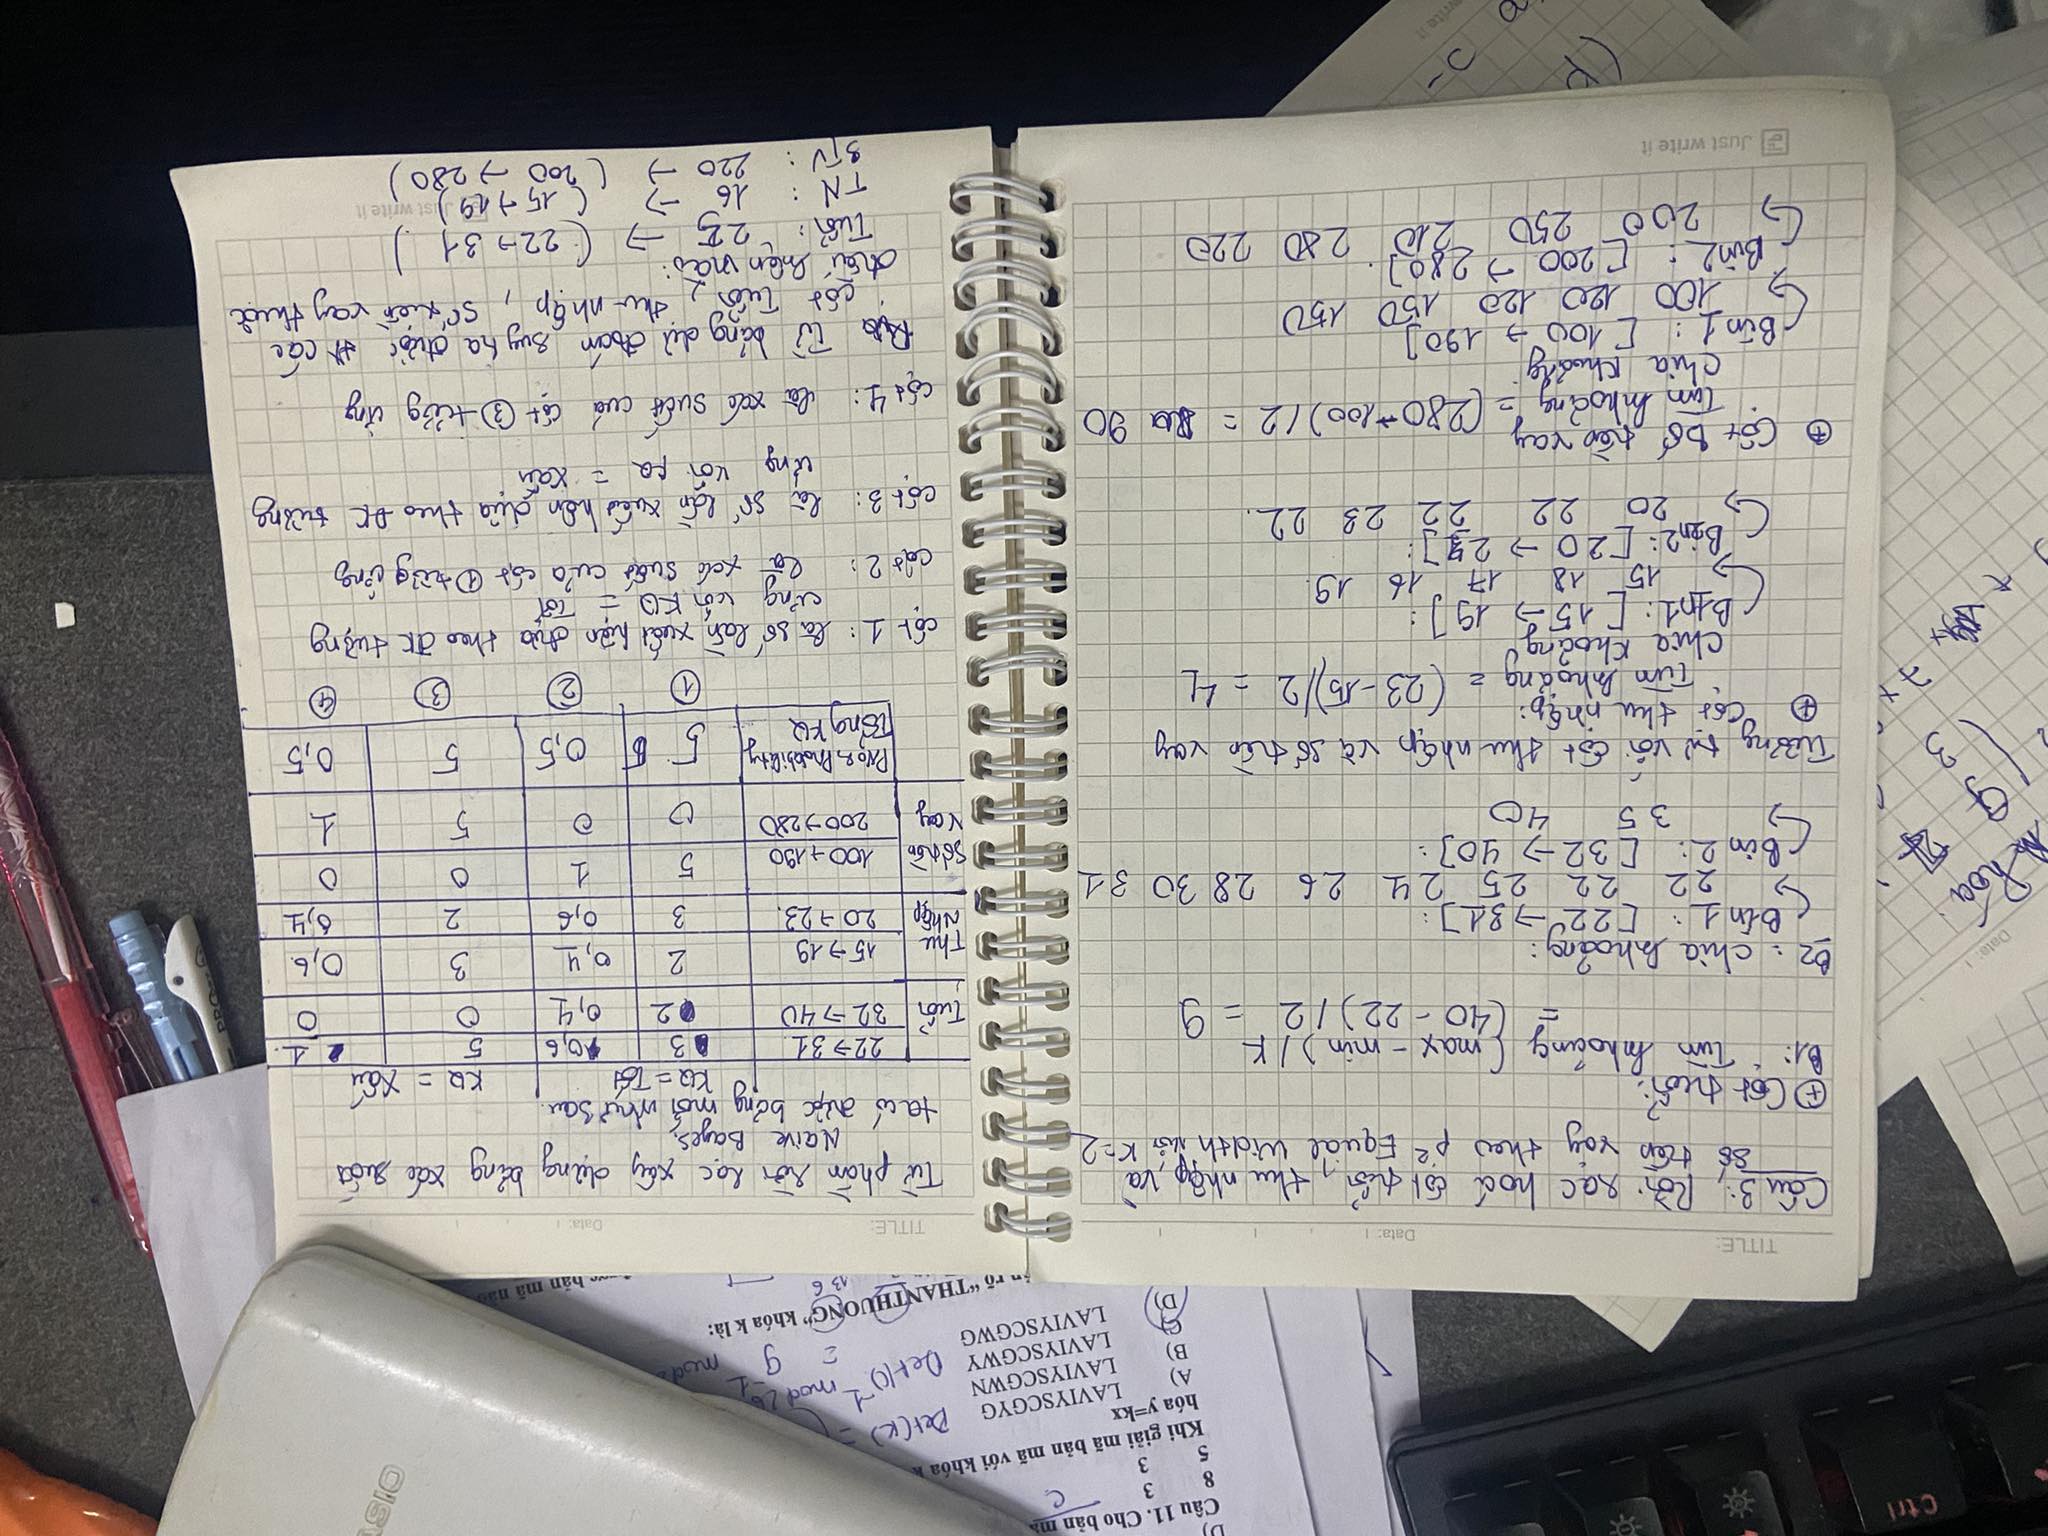 Ctrl
Câu 11. Cho bản mã
C
8 3
5 3
Khi giải mã bản mã với khóa k
hóa y=kx
A) LAVIYSCGYG
B) LAVIYSCGWN
C) LAVIYSCGWY
D) LAVIYSCGWG
Det(K) =
Det()^-1 mod 26
= 9^-1 mod
rõ “THANTHUONG” khóa k là:
13 6
được bản mã
TITLE:
Data:
Câu 3: Rời rạc hoá cột tuổi, thu nhập, và
số tiền vay theo p² Equal Width với K=2
⊕ Cột tuổi:
B1: Tìm khoảng (max - min) / K
= (40 - 22) / 2 = 9
B2: chia khoảng:
Bin 1: [22 → 31]:
22 22 25 24 26 28 30 31
Bin 2: [32 → 40]:
35 40
Tương tự với cột thu nhập và số tiền vay
⊕ Cột thu nhập:
Tìm khoảng = (23 - 15)/2 = 4
Chia khoảng
Bin1: [15 → 19]:
15 18 17 16 19.
Bin2: [20 → 23]:
20 22 22 23 22.
⊕ Cột số tiền vay
Tìm khoảng = (280 - 100)/2 = 90
Chia khoảng
Bin 1: [100 → 190]
100 120 120 150 150
Bin2: [200 → 280].
200 250 210 280 220
Just write it
TITLE:
Data:
Từ phần rời rạc xây dựng bảng xác suất
Naive Bayes.
ta có được bảng mới như sau.
KQ = Tốt KQ = Xấu
Tuổi 22 → 31 3 0,6 5 1
32 → 40 2 0,4 0 0
Thu nhập 15 → 19 2 0,4 3 0,6
20 → 23. 3 0,6 2 0,4
Số tiền vay 100 → 190 5 1 0 0
200 → 280 0 0 5 1
Probability Tổng KQ 5 0,5 5 0,5
① ② ③ ④
cột 1: là số lần xuất hiện dựa theo ĐK tương
ứng với KQ = Tốt
cột 2: là xác suất của cột ① tương ứng
cột 3: là số lần xuất hiện dựa theo ĐK tương
ứng với KQ = Xấu
cột 4: là xác suất của cột ③ tương ứng
Từ bảng dự đoán suy ra được các
cột Tuổi, thu nhập, số tiền vay thuộc
điều kiện nào:
Tuổi: 25 → (22 → 31)
TN: 16 → (15 → 19)
STV: 220 → (200 → 280)
Just write it